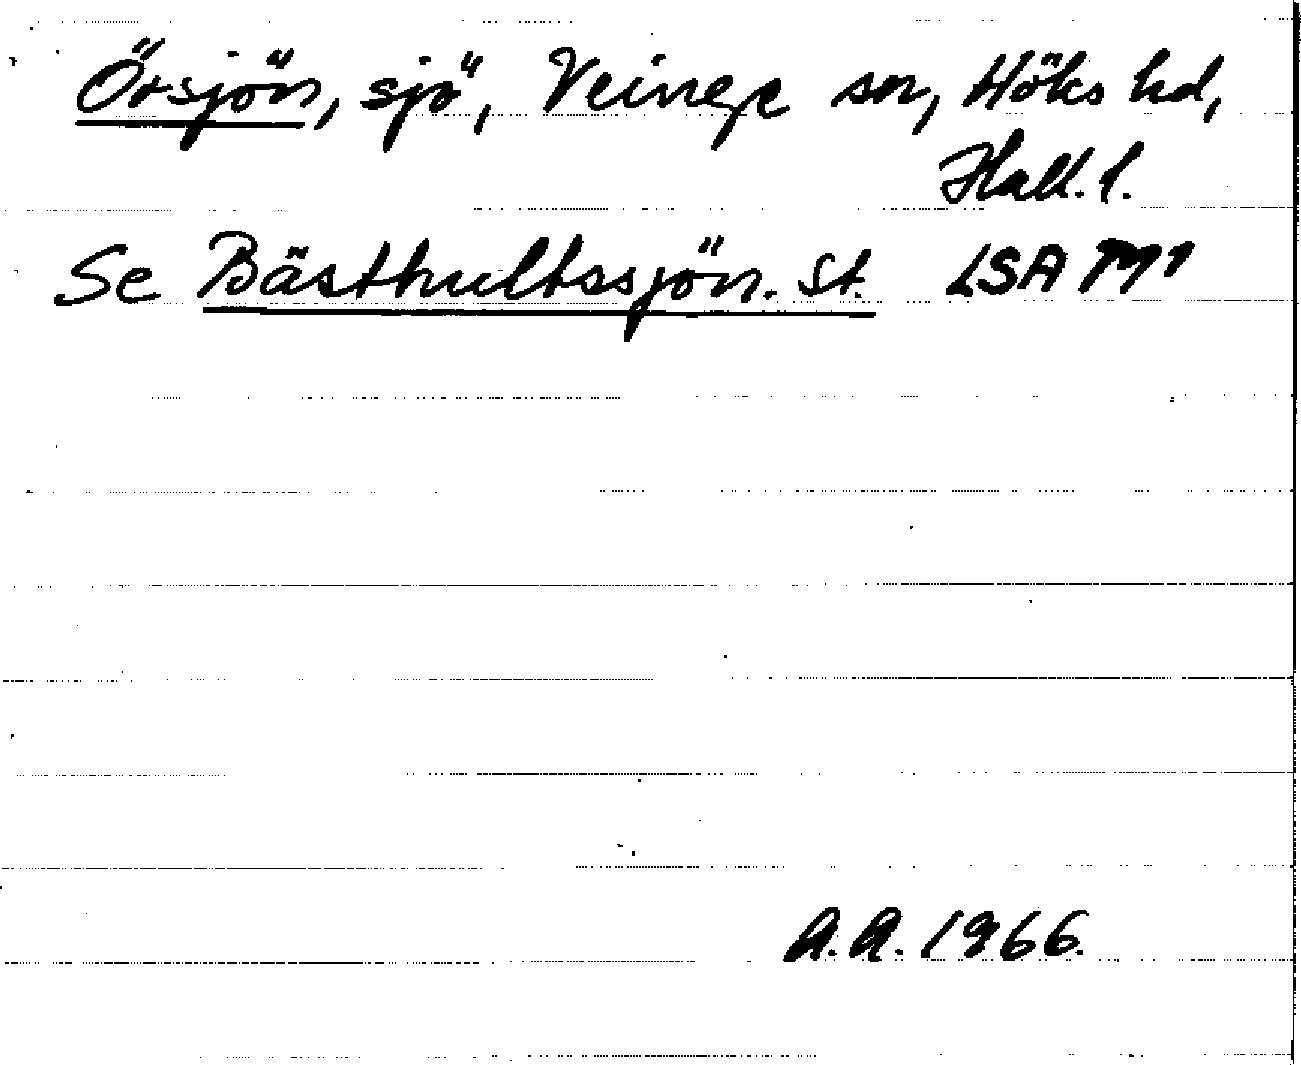 Örsjön, sjö, Veinge sn, Höks hd,
Hall. l.
Se Bästhultssjön. St. LSA M1
A.A. 1966.